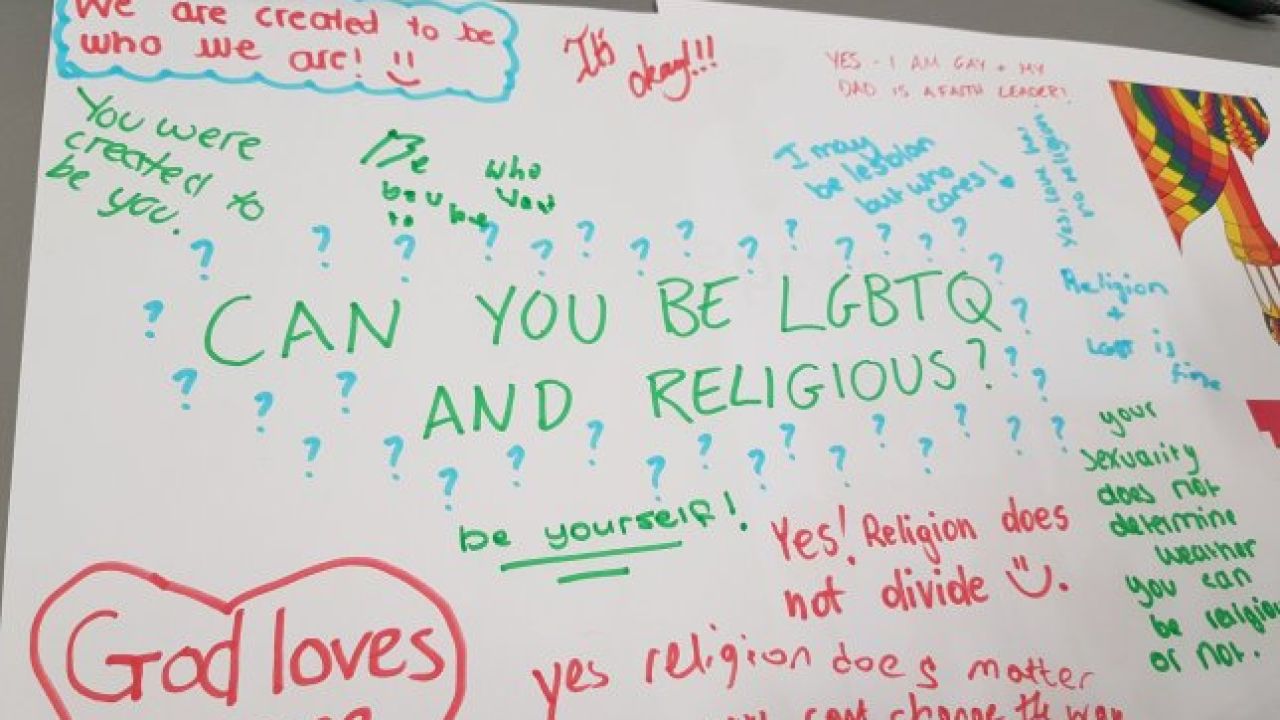 We are created to be
who we are!
It's
okay!!!
YES - I AM GAY + MY
DAD IS A FAITH LEADER!
You were
created to
be you.
Be who
you
to be
I may
be lesbian
but who
cares!
Religion
+
LGBT is
fine
? ? ? ? ? ? ? ? ? ? ? ? ? ? ?
CAN YOU BE LGBTQ
AND RELIGIOUS?
be yourself!
Yes! Religion does
not divide
your
sexuality
does not
determine
weather
you can
be religio
or not.
God loves
yes religion does matter
cant change the way